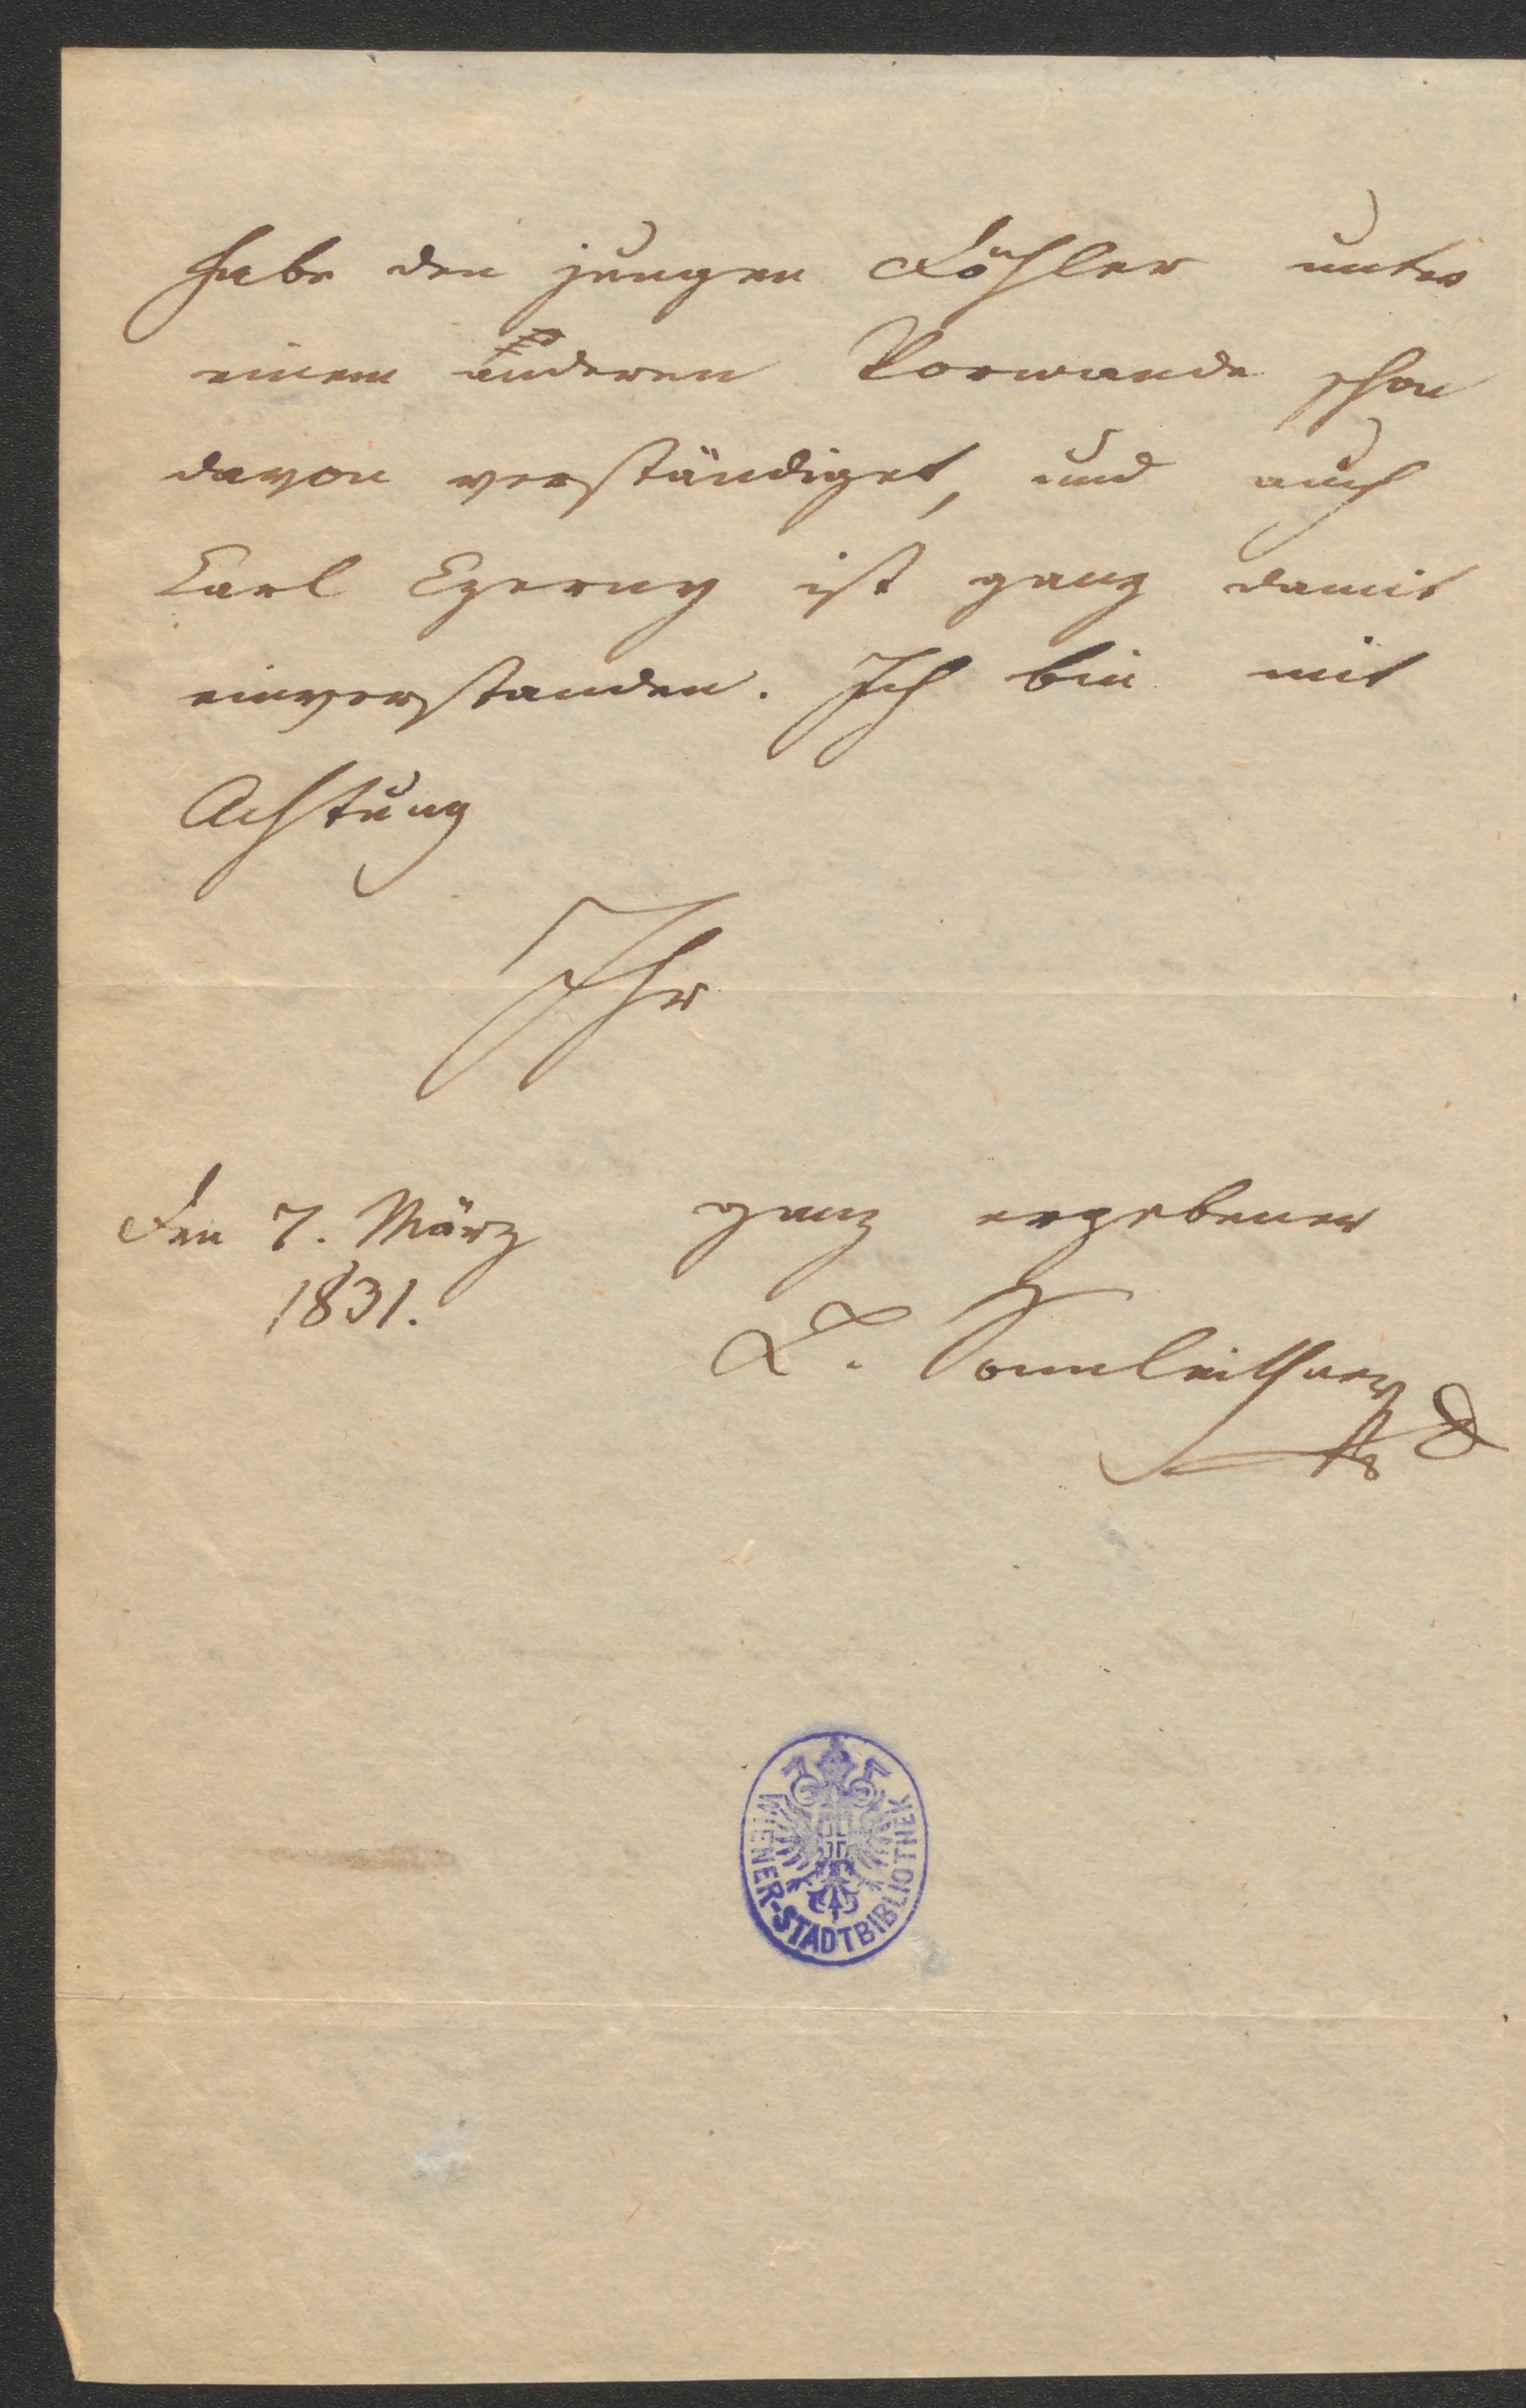 habe den jungen Döhler unter
einem anderen Vorwande schon
davon verständiget, und auch
Carl Czerny ist ganz damit
einverstanden. Ich bin mit
Achtung
Ihr
Den 7. März ganz ergebener
1831. L. Sonnleithner
WIENER-STADTBIBLIOTHEK